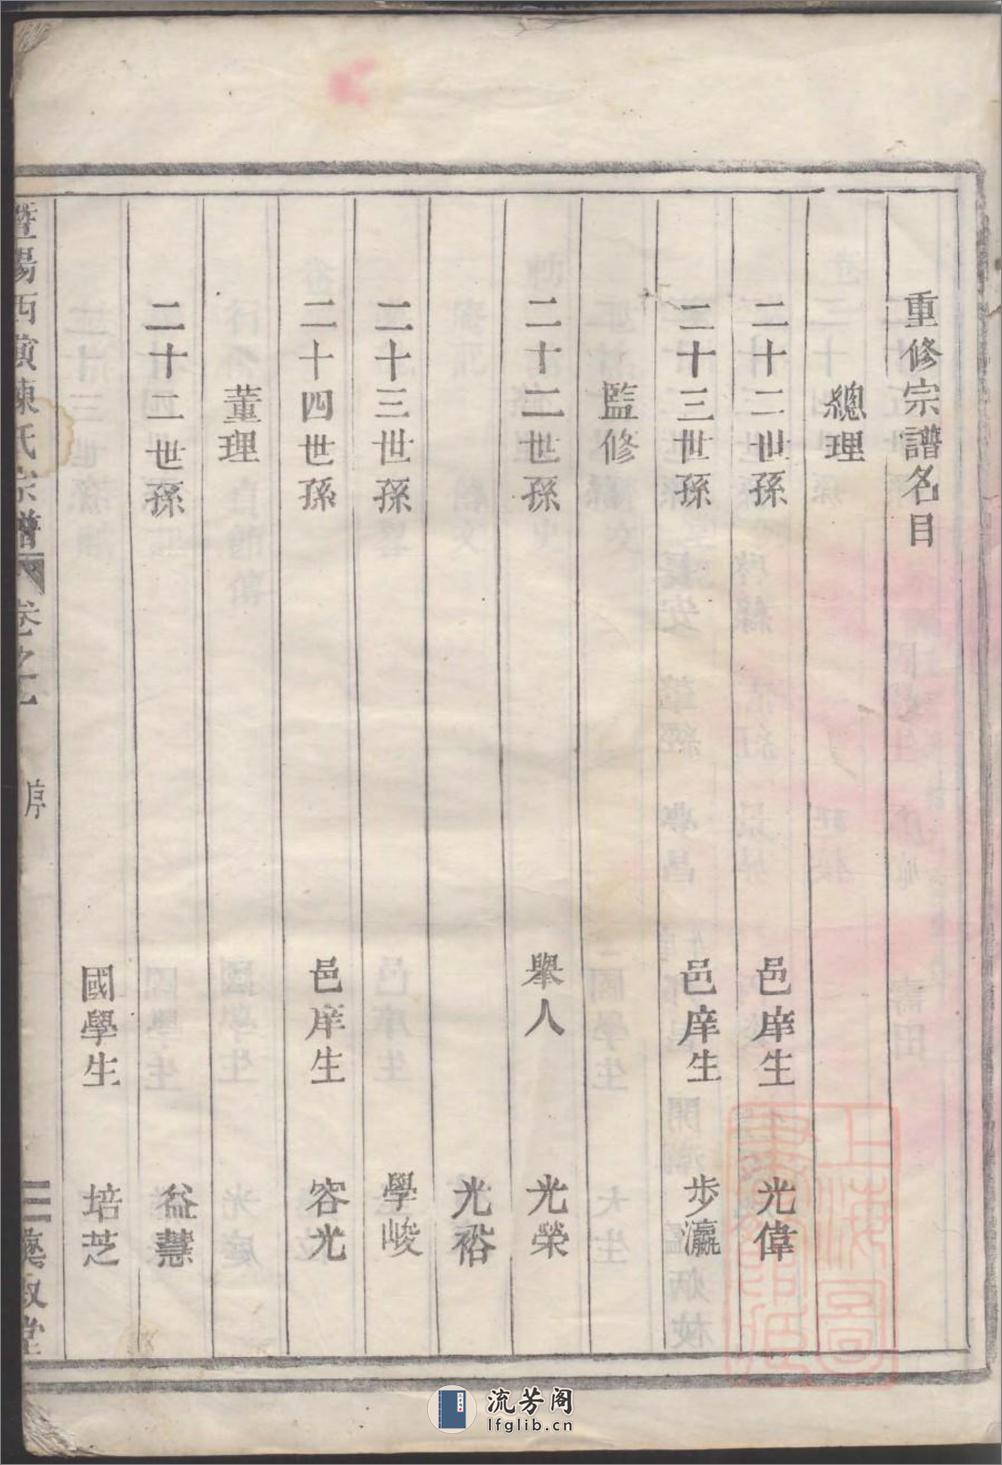 重修宗譜名目
總理
二十二世孫 邑庠生 光偉
二十三世孫 邑庠生 步瀛
監修
二十二世孫 舉人 光榮
光裕
二十三世孫 學峻
二十四世孫 邑庠生 容光
董理
二十二世孫 益慧
國學生 培芝
暨陽西橫陳氏宗譜 卷之一 序 三
流芳阁
lfglib.cn